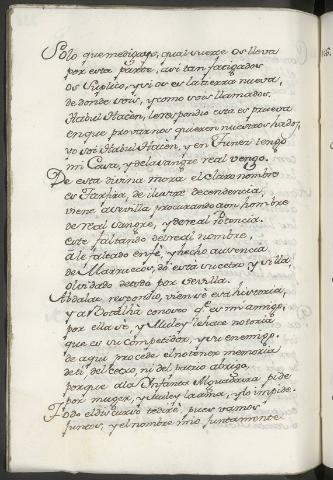 Solo que me digays, qual suerte os lleva
por esta parte, asi tan fatigados
os suplico, y si os es la tierra nueva,
de donde sois, y como sois llamados.
Habiul Hacen, le respondio esta es prueva
en que provarnos quieren nuestros hados,
yo soi Habiul Hacen, y en Tunez tengo
mi Casa, y de la sangre real vengo.
De esta divina mora el claro nombre
es Tarfira, de ilustre decendencia,
viene a sevilla procurando a un hombre
de real sangre, y de real Potencia.
este faltando del real nombre,
a le falcado en fé, y hecho ausencia
de Marruecos, do esta su cetro y silla,
olvidado de todo por sevilla.
Abdalac respondio, vien sé esa historia,
y a Botalha conosco q.e es mi amigo,
por ella se, y Muley le hace notoria
que es su competidor, y su enemigo.
de aqui procede el no tener memoria
de ti del cetro, ni del patrio abrigo,
porque a la Infanta pide
por muger, y Muley la ama, y lo impide.
Todo el discurso te diré, pues vamos
juntos, y el nombre mio juntamente